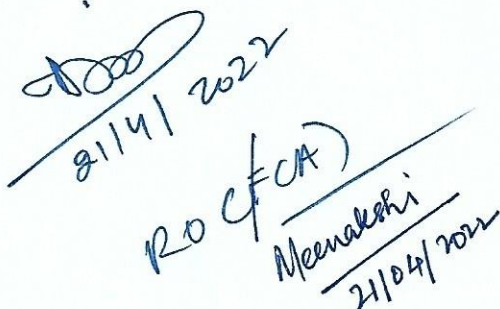 21/4/2022
RO (FCA)
Meenakshi
21/04/2022